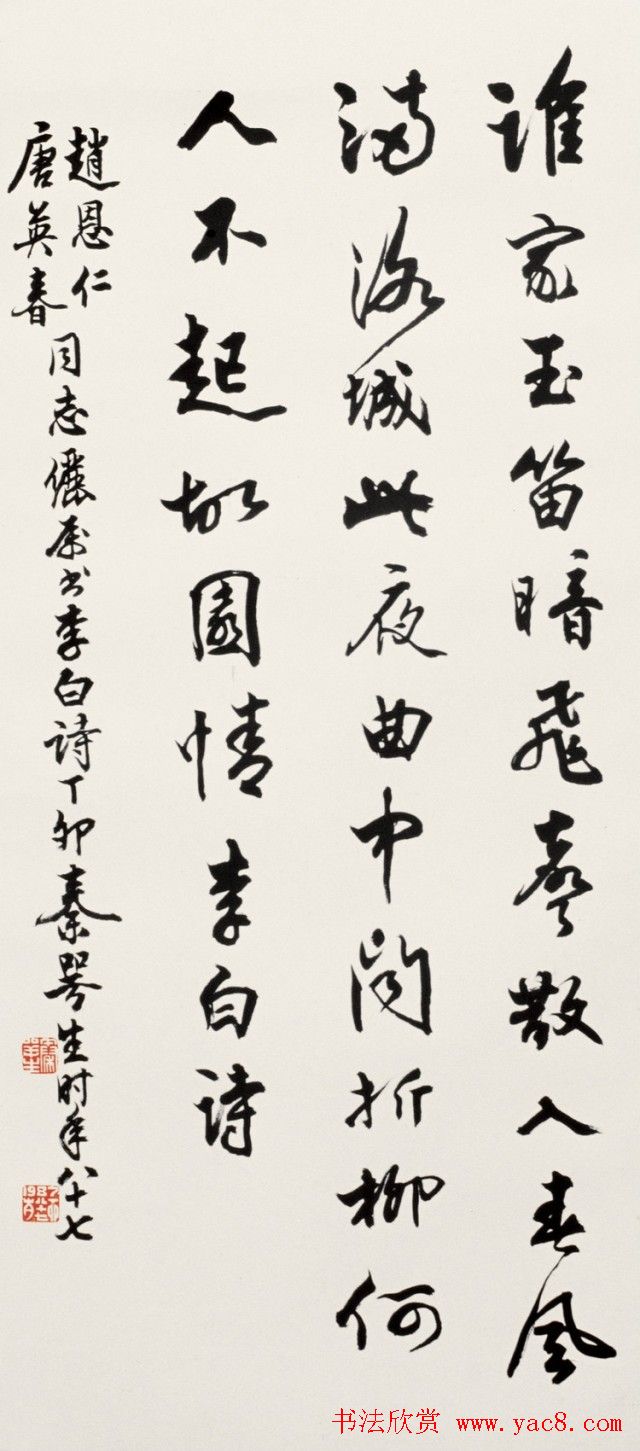 谁家玉笛暗飛聲散入春風
满洛城此夜曲中闻折柳何
人不起故園情李白诗
趙恩仁
唐英春
同志儷属书李白诗丁卯秦咢生时年八十七
书法欣赏 www.yac8.com